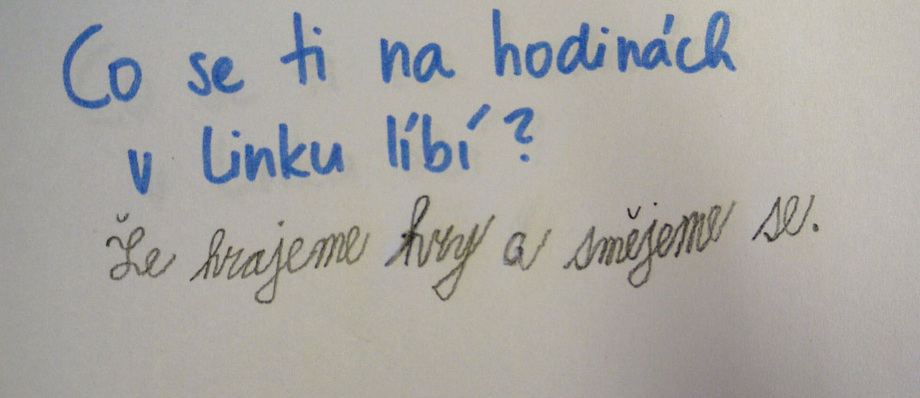 Co se ti na hodinách
v Linku líbí?
Že hrajeme hry a smějeme se.